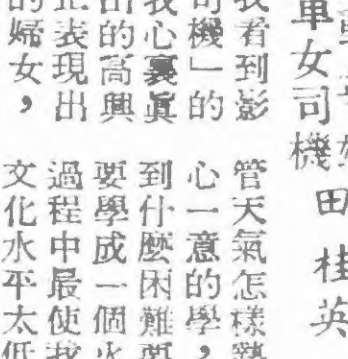 車女司機 田桂英
我看到影
司機」的
我心裏眞
出的高興
正表現出
的婦女，
管天氣怎樣
心一意的學，
到什麼困難要
要學成一個火
過程中最使我
文化水平太低